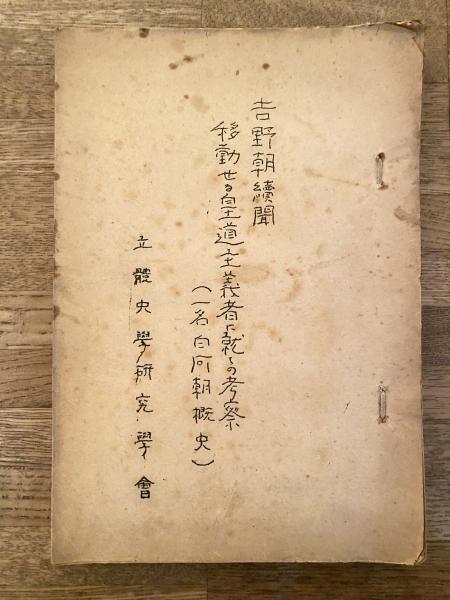 吉野朝續聞
移動せる皇道主義者に就ての考察
(一名白河朝概史)
立體史學研究學會